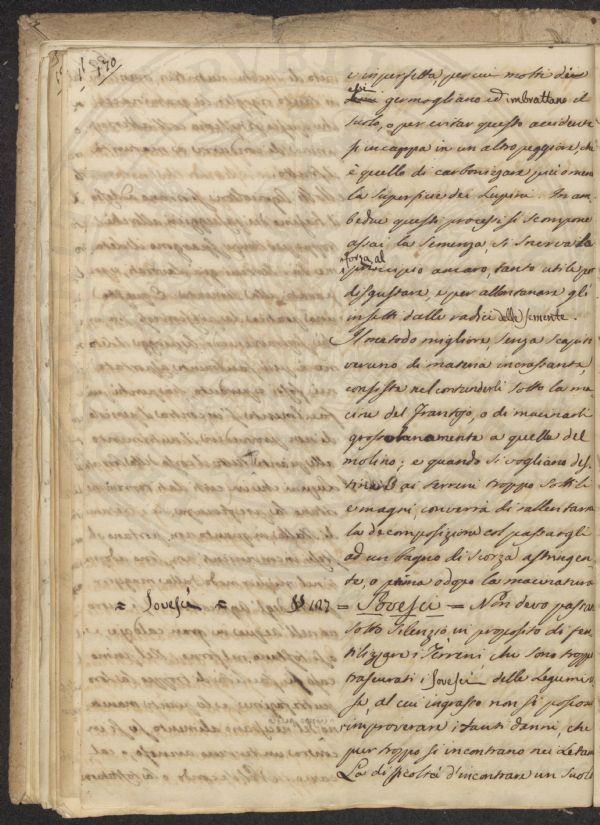 170
e imperfetta, per cui molti di
essi germogliano ed imbrattano il
suolo, o per evitar questo accidente
s'incappa in un altro peggiore, ch'
è quello di carbonizzare più o men
la superficie dei Lupini. In am-
bedue questi processi si scompone
assai la semenza, si snerva la
forza al
principio amaro, tanto utile per
disgustare, e per allontanare gl'
insetti dalle radici delle semente.
Il metodo migliore, senza scapito
veruno di materia incrassante,
consiste nel contunderli sotto la ma-
cine del frantojo, o di macinarli
grossolanamente a quella del
molino; e quando si vogliano des-
tinarli ai terreni troppo sottili
e magri, converrà di rallentarne
la decomposizione col passargli
ad un bagno di scorza astringen-
te, o prima o dopo la macinatura
= Sovesci = § 127 = Sovesci = Non devo passar
sotto silenzio, in proposito di fer-
tilizzare i Terreni, che sono troppo
trascurati i Sovesci delle Legumino-
se, al cui ingrasso non si possono
rimproverare i tanti danni, che
pur troppo si incontrano nei Letami
La difficoltà d'incontrare un suolo